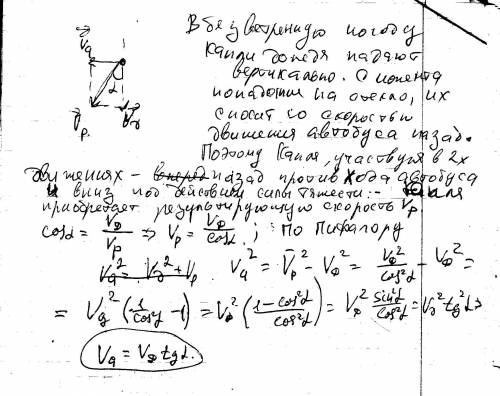 В безветренную погоду
капли дождя падают
вертикально. С момента
попадания на стекло, их
сносит со скоростью
движения автобуса назад.
Поэтому капля, участвуя в 2х
движениях - назад против хода автобуса
и вниз под действием силы тяжести:-
приобретает результирующую скорость Vр.
cosα = Vд/Vр ⇒ Vр = Vд/cosα ; По Пифагору
Vа² = Vд² + Vр Vа² = Vр² - Vд² = Vд²/cos²α - Vд² =
= Vд² (1/cos²α - 1) = Vд² (1-cos²α/cos²α) = Vд² sin²α/cos²α = Vд² tg²α ⇒
Vа = Vд tgα.
Vа
α
Vр
Vд